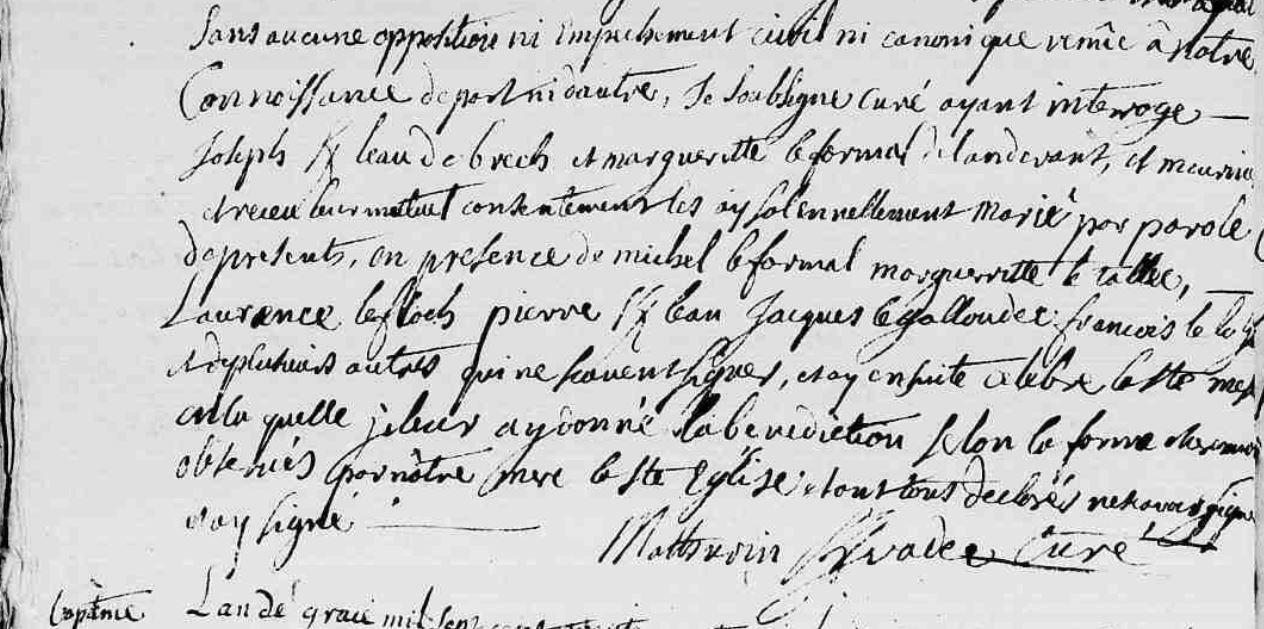 Sans aucune opposition ni Empechement civil ni canonique venüe â Notre
Connoissance de part ni dautre, Je Soubsigne Curé ayant interroge
Joseph leau de brech et margueritte le formal de landevant, et
et receu leur mutuel consentement les ay solennellement Marié par parole
de presents, en presence de michel le formal margueritte le
Laurence le floch pierre leau Jacques le galloudec francois le
et de plusieurs autres qui ne scavent signer, et ay ensuite celebre la Ste
en la quelle je leur ay donné la benediction selon la forme
obserués par nôtre mere la Ste Eglise tous declarés ne scavoir signer
et ay signé
Mathurin curé
Bapteme L'an dé grace mil sept cent trente